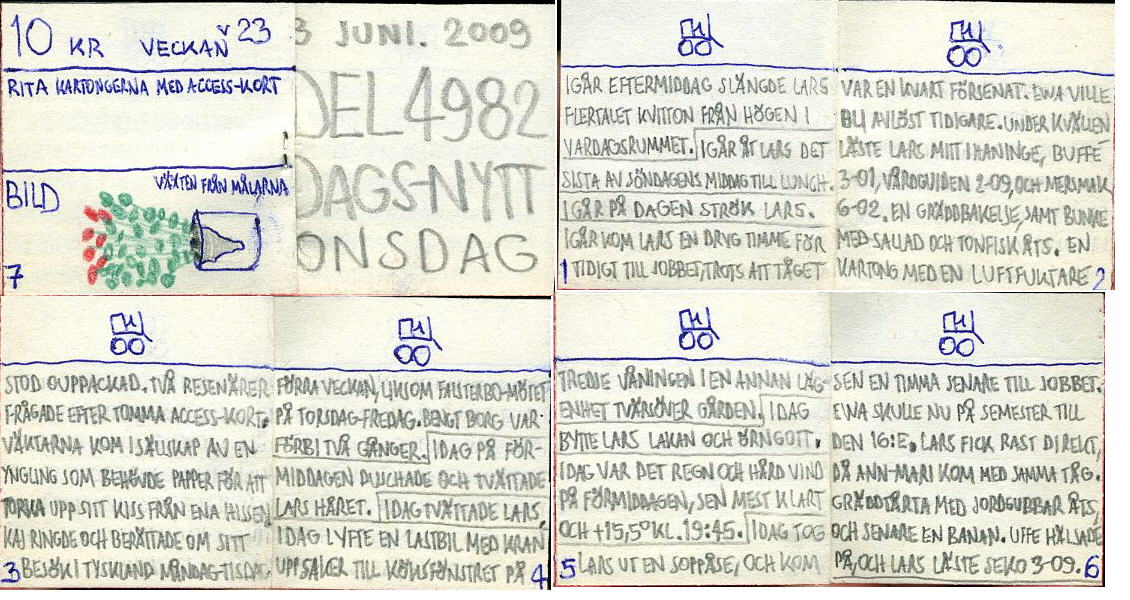 10 KR VECKAN 23
RITA KARTONGERNA MED ACCESS-KORT
BILD
VÄXTEN FRÅN MÅLARNA
7
3 JUNI. 2009
DEL 4982
DAGS-NYTT
ONSDAG
IGÅR EFTERMIDDAG SLÄNGDE LARS
FLERTALET KVITTON FRÅN HÖGEN I
VARDAGSRUMMET. IGÅR ÅT LARS DET
SISTA AV SÖNDAGENS MIDDAG TILL LUNCH.
IGÅR PÅ DAGEN STRÖK LARS.
IGÅR KOM LARS EN DRYG TIMME FÖR
TIDIGT TILL JOBBET, TROTS ATT TÅGET
1
VAR EN KVART FÖRSENAT. EWA VILLE
BLI AVLÖST TIDIGARE. UNDER KVÄLLEN
LÄSTE LARS MITT I HANINGE, BUFFÉ
3-01, VÅRDGUIDEN 2-09, OCH MERSMAK
6-02. EN GRÄDDBAKELSE, SAMT BUNKE
MED SALLAD OCH TONFISK ÅTS. EN
KARTONG MED EN LUFTFUKTARE
2
STOD OUPPACKAD. TVÅ RESENÄRER
FRÅGADE EFTER TOMMA ACCESS-KORT.
VÄKTARNA KOM I SÄLLSKAP AV EN
YNGLING SOM BEHÖVDE PAPPER FÖR ATT
TORKA UPP SITT KISS FRÅN ENA HISSEN.
KAJ RINGDE OCH BERÄTTADE OM SITT
3 BESÖK I TYSKLAND MÅNDAG-TISDAG
FÖRRA VECKAN, LIKSOM FALSTERBO-MÖTET
PÅ TORSDAG-FREDAG. BENGT BORG VAR
FÖRBI TVÅ GÅNGER. IDAG PÅ FÖR-
MIDDAGEN DUSCHADE OCH TVÄTTADE
LARS HÅRET. IDAG TVÄTTADE LARS.
IDAG LYFTE EN LASTBIL MED KRAN
UPP SAKER TILL KÖKSFÖNSTRET PÅ 4
TREDJE VÅNINGEN I EN ANNAN LÄG-
ENHET TVÄRSÖVER GÅRDEN. IDAG
BYTTE LARS LAKAN OCH ÖRNGOTT.
IDAG VAR DET REGN OCH HÅRD VIND
PÅ FÖRMIDDAGEN, SEN MEST KLART
OCH +15,5° KL. 19:45. IDAG TOG
5 LARS UT EN SOPPÅSE, OCH KOM
SEN EN TIMMA SENARE TILL JOBBET.
EWA SKULLE NU PÅ SEMESTER TILL
DEN 16:E. LARS FICK RAST DIREKT,
DÅ ANN-MARI KOM MED SAMMA TÅG.
GRÄDDTÅRTA MED JORDGUBBAR ÅTS,
OCH SENARE EN BANAN. UFFE HÄLSADE
PÅ, OCH LARS LÄSTE SEKO 3-09. 6